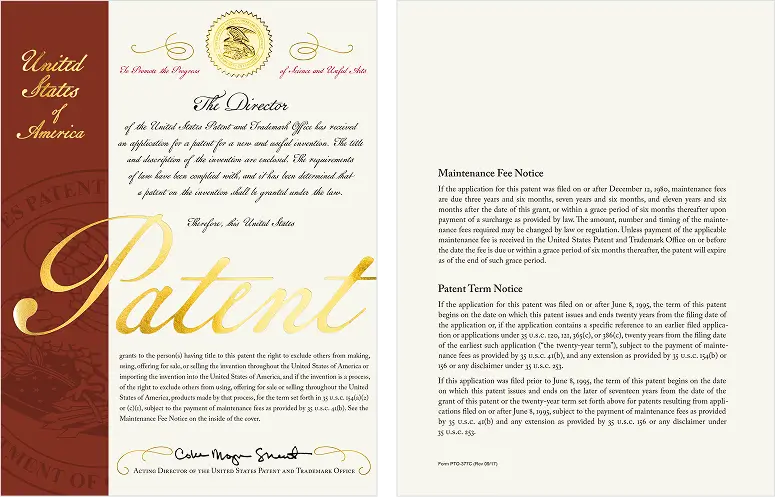 United
States
of
America
To Promote the Progress
of Science and Useful Arts
The Director
of the United States Patent and Trademark Office has received
an application for a patent for a new and useful invention. The title
and description of the invention are enclosed. The requirements
of law have been complied with, and it has been determined that
a patent on the invention shall be granted under the law.
Therefore, this United States
Patent
grants to the person(s) having title to this patent the right to exclude others from making,
using, offering for sale, or selling the invention throughout the United States of America or
importing the invention into the United States of America, and if the invention is a process,
of the right to exclude others from using, offering for sale or selling throughout the United
States of America, products made by that process, for the term set forth in 35 U.S.C. 154(a)(2)
or (c)(1), subject to the payment of maintenance fees as provided by 35 U.S.C. 41(b). See the
Maintenance Fee Notice on the inside of the cover.
Acting Director of the United States Patent and Trademark Office
Maintenance Fee Notice
If the application for this patent was filed on or after December 12, 1980, maintenance fees
are due three years and six months, seven years and six months, and eleven years and six
months after the date of this grant, or within a grace period of six months thereafter upon
payment of a surcharge as provided by law. The amount, number and timing of the mainte-
nance fees required may be changed by law or regulation. Unless payment of the applicable
maintenance fee is received in the United States Patent and Trademark Office on or before
the date the fee is due or within a grace period of six months thereafter, the patent will expire
as of the end of such grace period.
Patent Term Notice
If the application for this patent was filed on or after June 8, 1995, the term of this patent
begins on the date on which this patent issues and ends twenty years from the filing date of
the application or, if the application contains a specific reference to an earlier filed applica-
tion or applications under 35 U.S.C. 120, 121, 365(c), or 386(c), twenty years from the filing date
of the earliest such application ("the twenty-year term"), subject to the payment of mainte-
nance fees as provided by 35 U.S.C. 41(b), and any extension as provided by 35 U.S.C. 154(b) or
156 or any disclaimer under 35 U.S.C. 253.
If this application was filed prior to June 8, 1995, the term of this patent begins on the date
on which this patent issues and ends on the later of seventeen years from the date of the
grant of this patent or the twenty-year term set forth above for patents resulting from appli-
cations filed on or after June 8, 1995, subject to the payment of maintenance fees as provided
by 35 U.S.C. 41(b) and any extension as provided by 35 U.S.C. 156 or any disclaimer under
35 U.S.C. 253.
Form PTO-377C (Rev 09/17)